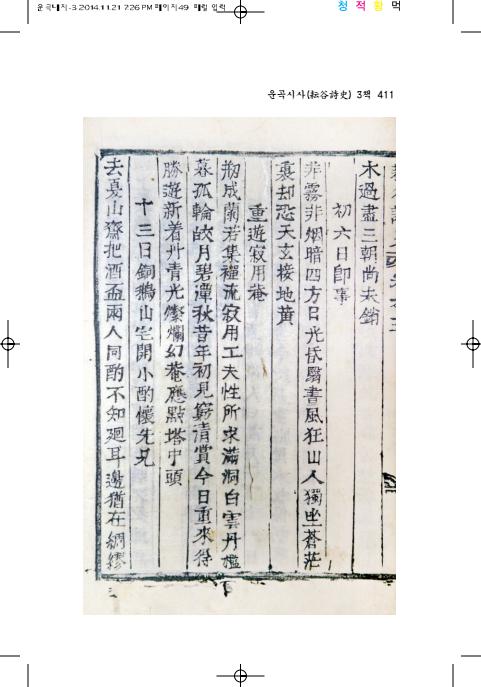 운곡내지-3 2014.11.21 7:26 PM 페이지49 매일 입력
청 적 황 먹
운곡시사(耘谷詩史) 3책 411
木過盡三朝尚未銷
初六日卽事
非霧非烟暗四方日光昏翳晝風狂山人獨坐蒼茫
裏却恐天玄接地黃
重遊寂用菴
刱成蘭若集禪流寂用工夫性所求滿洞白雲丹檻
暮孤輪皎月碧潭秋昔年初見窮清賞今日重來得
勝遊新着丹青光燦爛幻菴應點塔中頭
十三日銅鵝山宅開小酌懷先兄
去夏山齋把酒盃兩人同酌不知廻耳邊猶在綢繆